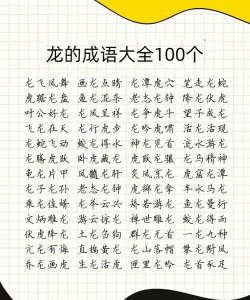 龙的成语大全100个
龙飞凤舞 画龙点睛 龙潭虎穴 笔走龙蛇
虎踞龙盘 鱼龙混杂 老态龙钟 降龙伏虎
叶公好龙 龙凤呈祥 龙争虎斗 望子成龙
飞龙在天 龙行虎步 龙吟虎啸 活龙活现
龙蛇飞动 蛟龙得水 神龙见首 流水游龙
龙腾虎跃 卧虎藏龙 虎跃龙骧 龙马精神
龟龙片甲 凤髓龙肝 炙凤烹龙 虎窟龙潭
龙子龙孙 老态龙钟 虎掷龙拿 车水马龙
乘龙佳婿 龙举云兴 搭若游龙 鱼龙曼衍
文炳雕龙 游云惊龙 禅世雕龙 蛟龙得雨
伏虎降龙 土龙刍狗 群龙无首 一龙九种
亢龙有悔 直捣黄龙 龙山落帽 攀龙附凤
乔龙画虎 生龙活虎 匣里龙吟 龙首豕足